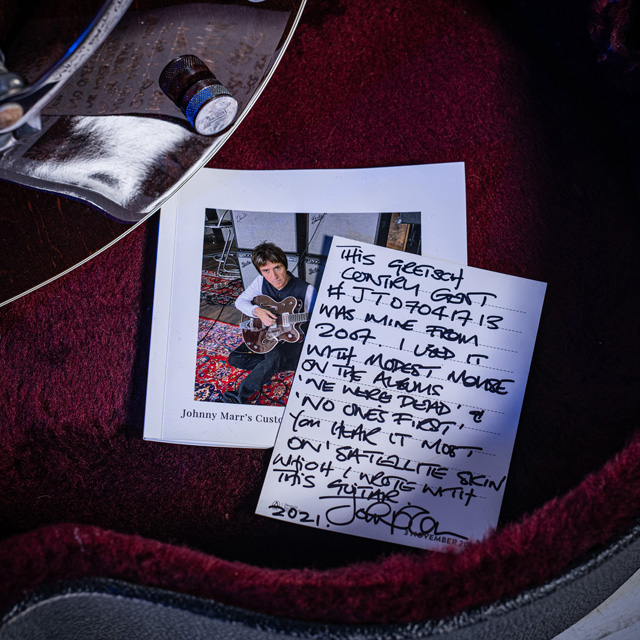 Johnny Marr's Custo
THIS GRETSCH
COUNTRY GENT
# JT07041713
WAS MINE FROM
2007. I USED IT
WITH MODEST MOUSE
ON THE ALBUMS
'WE WERE DEAD' &
'NO ONES FIRST'.
YOU HEAR IT MOST
ON 'SATELLITE SKIN
WHICH I WROTE WITH
THIS GUITAR
2021.
NOVEMBER